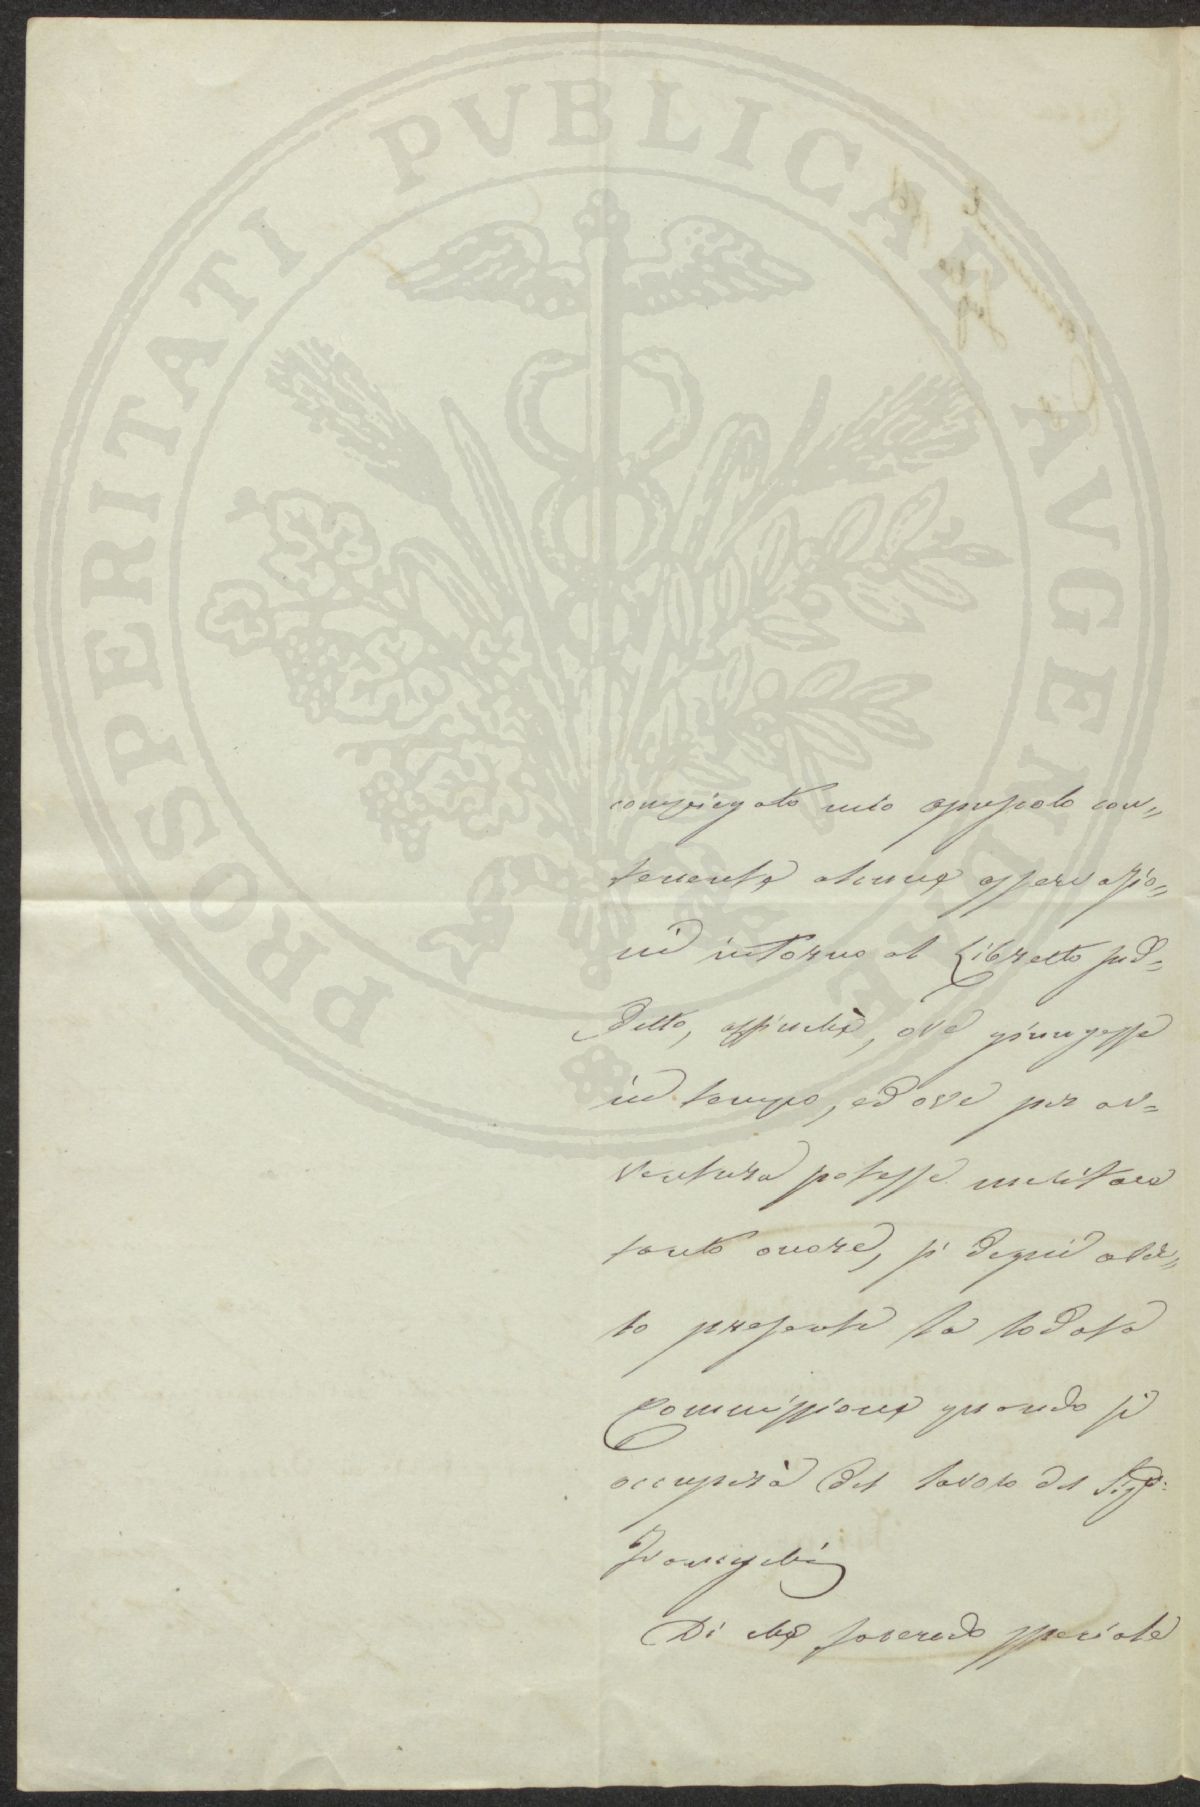 PROSPERITATI PVBLICAE AVGENDAE
compiegato mio opuscolo con„
tenente alcune osservazio„
ni intorno al Libretto sud„
detto, affinché, ove giungesse
in tempo, ed ove per av„
ventura potesse meritare
tanto onore, si degni aver„
lo presente la lodata
Commissione quando si
occuperà del lavoro del Sigr.
Franceschi
Di che facendo speciale